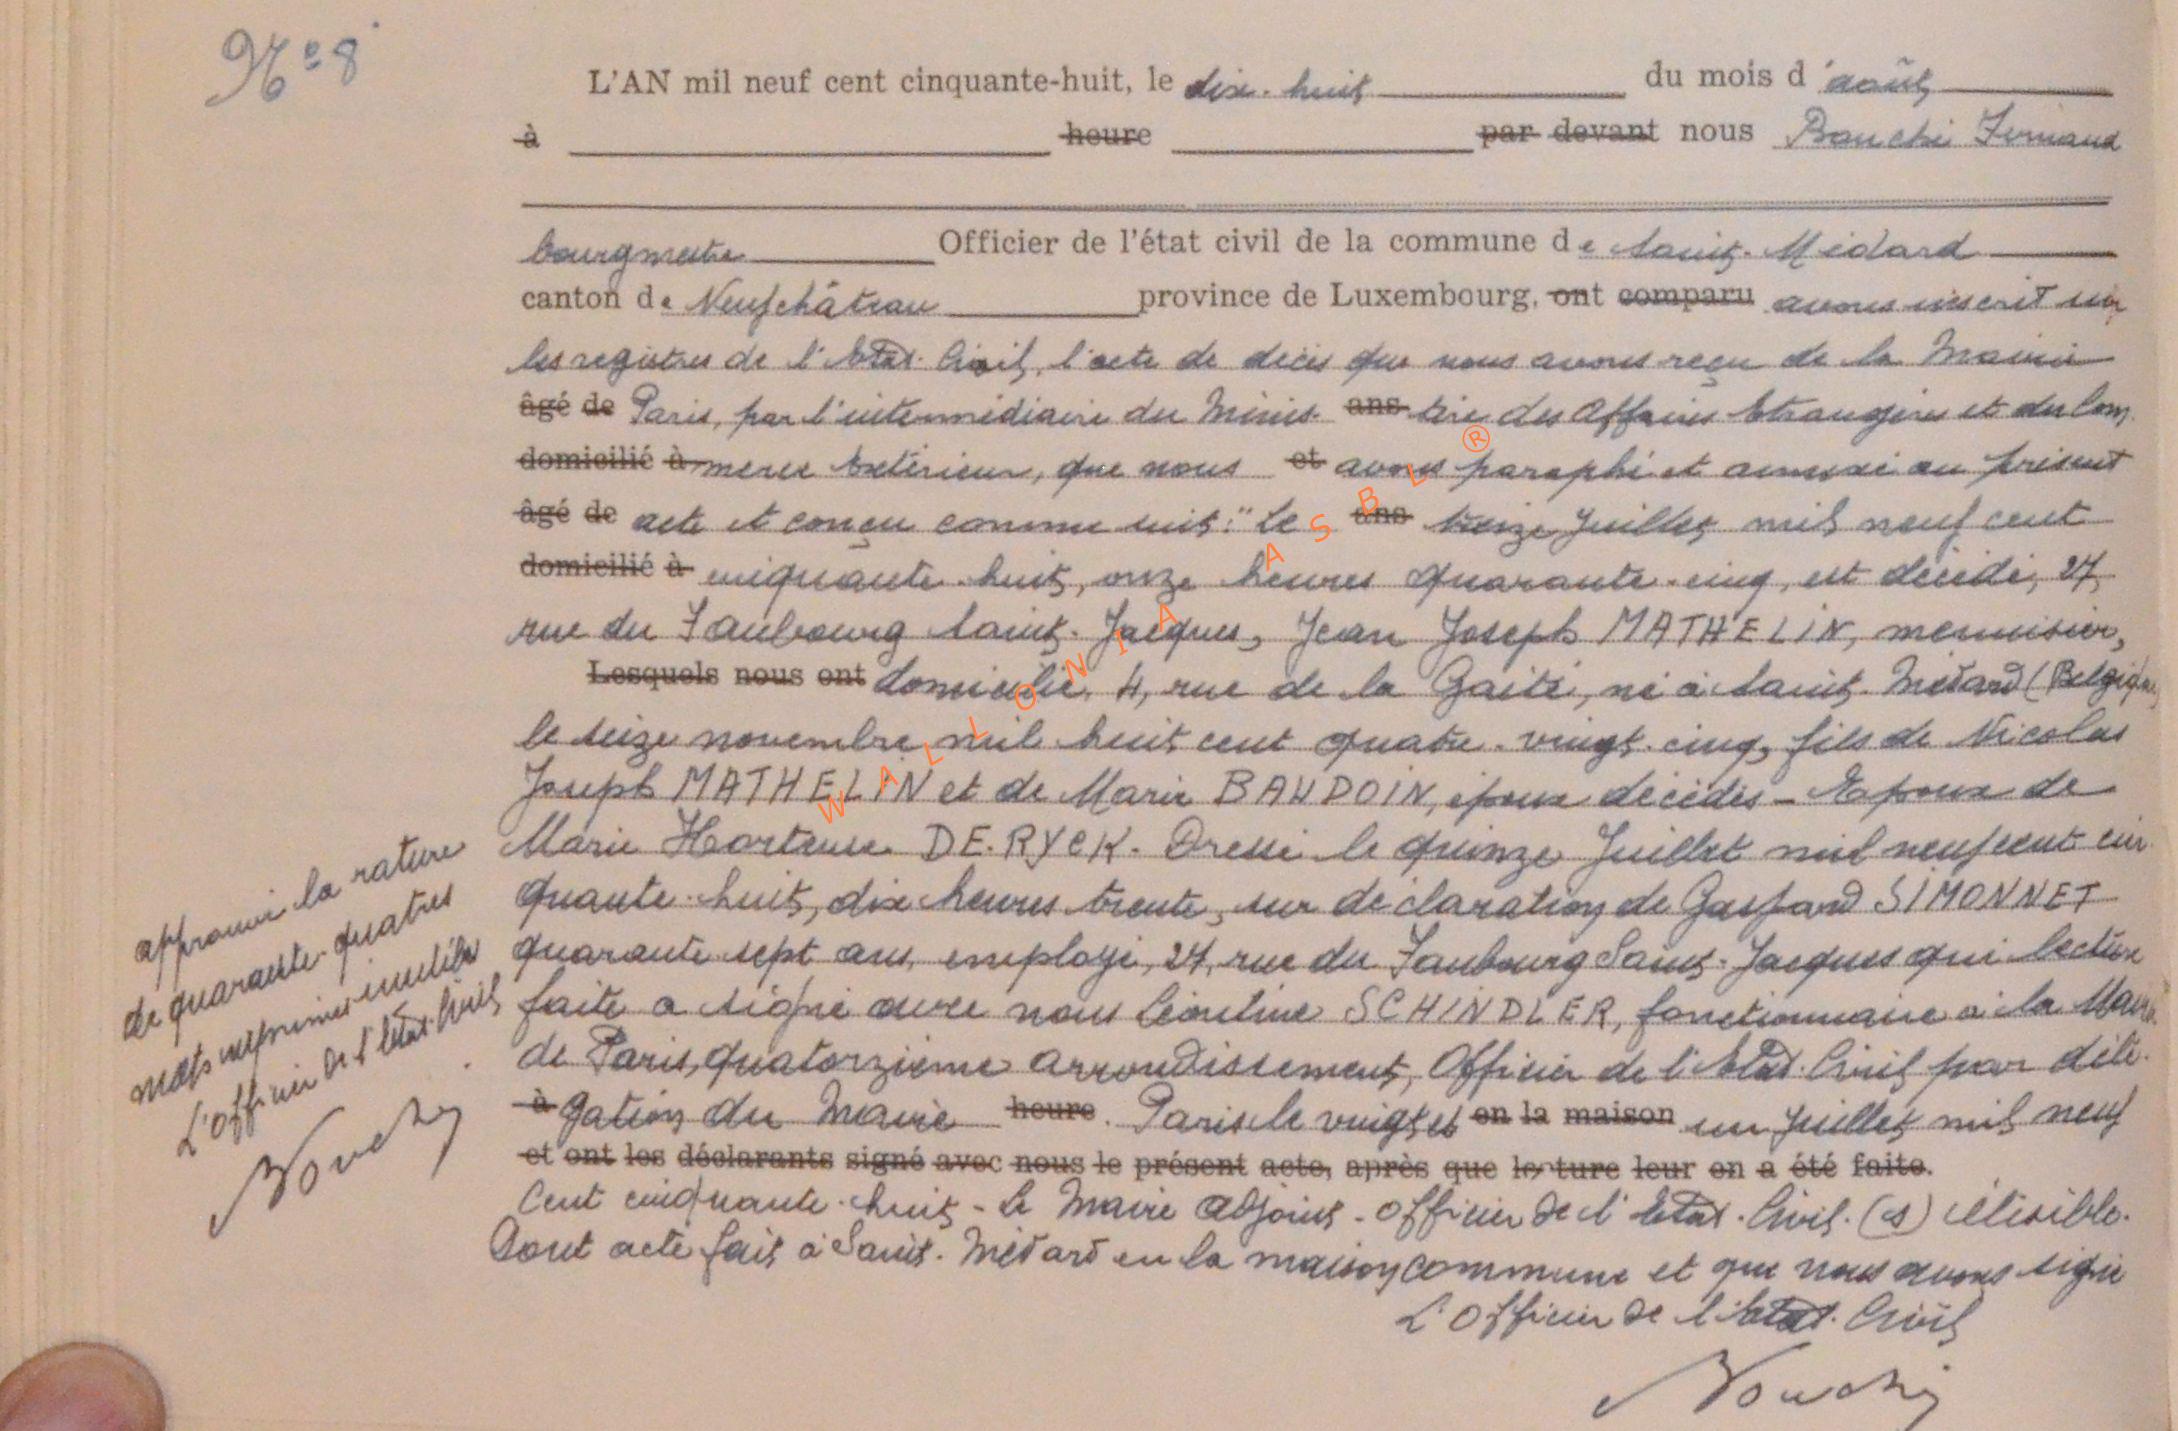 N° 8
L'AN mil neuf cent cinquante-huit, le dix-huit du mois d'août
à heure par devant nous Fernand
bourgmestre Officier de l'état civil de la commune de Saint-Médard
canton de Neufchâteau province de Luxembourg, ont comparu avons inscrit sur
les registres de l'Etat-Civil, l'acte de décès que nous avons reçu de la Mairie
âgé de Paris, par l'intermédiaire du Minis- ans tère des Affaires Etrangères et du Com-
domicilié à merce Extérieur, que nous et avons paraphé et annexé au présent
âgé de acte et conçu comme suit: "Le ans treize Juillet mil neuf cent
domicilié à cinquante-huit, onze heures quarante-cinq, est décédé, 27,
rue du Faubourg Saint-Jacques, Jean Joseph MATHELIN, menuisier,
Lesquels nous ont domicilié, 4, rue de la Gaité, né à Saint-Médard (Belgique)
le seize novembre mil huit cent quatre-vingt-cinq, fils de Nicolas
Joseph MATHELIN et de Marie BAUDOIN, époux décédés - Epoux de
Marie Hortense DE.RYCK. Dressé le quinze Juillet mil neuf cent cin-
quante-huit, dix heures trente, sur déclaration de Gaspard SIMONNET
quarante-sept ans, employé, 27, rue du Faubourg Saint-Jacques qui lecture
faite a signé avec nous Léontine SCHINDLER, fonctionnaire à la Mairie
de Paris, quatorzième arrondissement, Officier de l'Etat-Civil par délé-
à gation du Maire heure. Paris le vingt et en la maison un Juillet mil neuf
et ont les déclarants signé avec nous le présent acte, après que lecture leur en a été faite.
Cent cinquante-huit - le Maire adjoint - officier de l'Etat-Civil. (s) illisible.
Dont acte fait à Saint-Médard en la maison commune et que nous avons signé
L'Officier de l'Etat-Civil
approuvé la rature
de quarante-quatres
mots imprimés inutiles
L'officier de l'Etat-Civil
WALLONIA ASBL ®